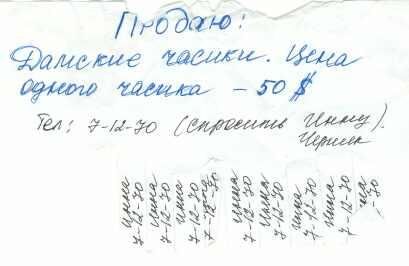 Продаю:
Дамские часики. Цена
одного часика – 50 $
Тел: 7-12-70 (спросить Инну).
Черняк
Инна
7-12-70
Инна
7-12-70
Инна
7-12-70
Инна
7-12-70
Инна
7-12-70
Инна
7-12-70
Инна
7-12-70
Инна
7-12-70
-70